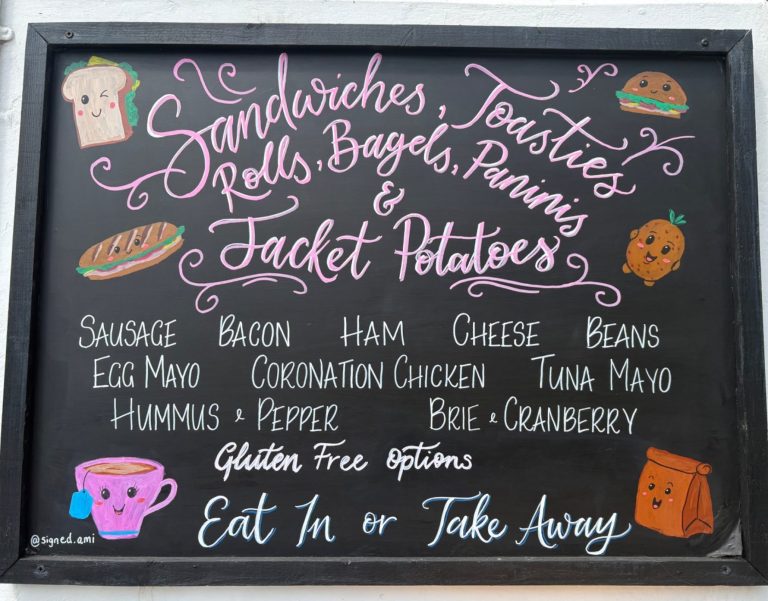 Sandwiches, Toasties
Rolls, Bagels, Paninis
&
Jacket Potatoes
SAUSAGE BACON HAM CHEESE BEANS
EGG MAYO CORONATION CHICKEN TUNA MAYO
HUMMUS & PEPPER BRIE & CRANBERRY
Gluten Free Options
Eat In or Take Away
@signed.ami